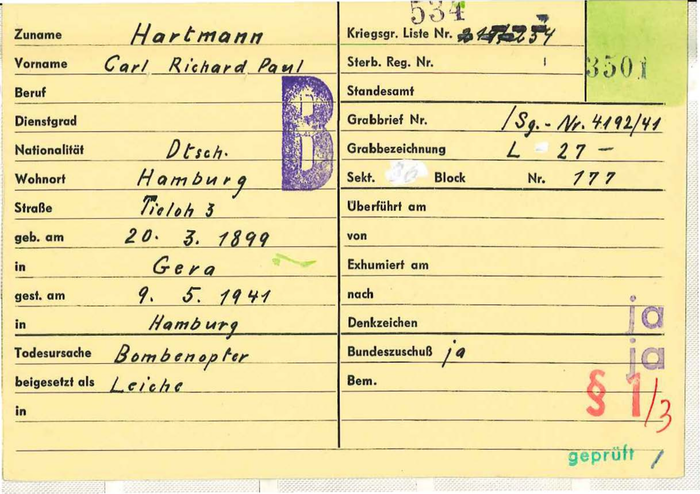 534
Zuname Hartmann
Vorname Carl Richard Paul
Beruf
Dienstgrad
Nationalität Dtsch.
Wohnort Hamburg
Straße Tieloh 3
geb. am 20. 3. 1899
in Gera
gest. am 9. 5. 1941
in Hamburg
Todesursache Bombenopfer
beigesetzt als Leiche
in
B
Kriegsgr. Liste Nr.
Sterb. Reg. Nr.
3501
Standesamt
Grabbrief Nr. /Sg.-Nr. 4192/41
Grabbezeichnung L 27 –
Sekt. Block Nr. 177
Überführt am
von
Exhumiert am
nach
Denkzeichen ja
Bundeszuschuß ja ja
Bem.
§ 1/3
geprüft